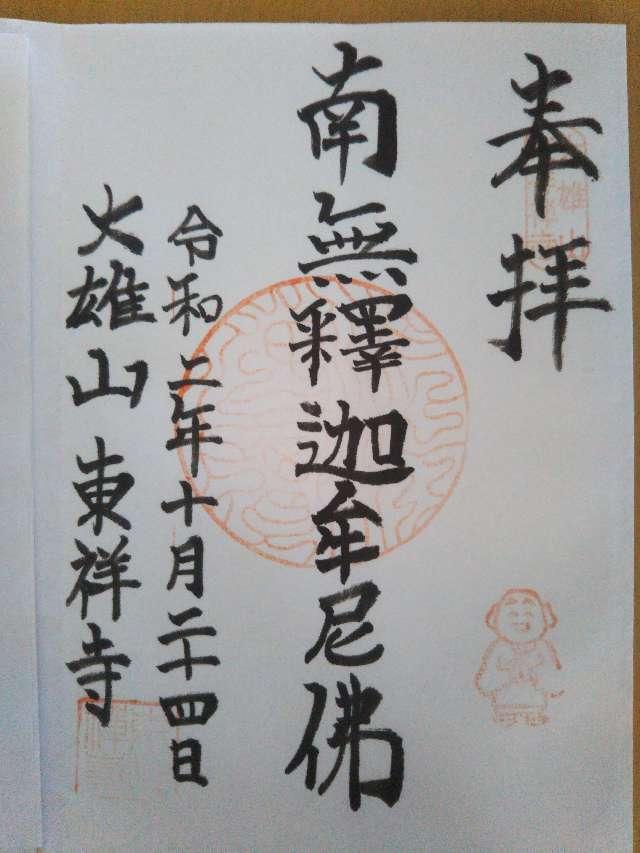 奉拝
南無釋迦牟尼佛
令和二年十月二十四日
大雄山東祥寺